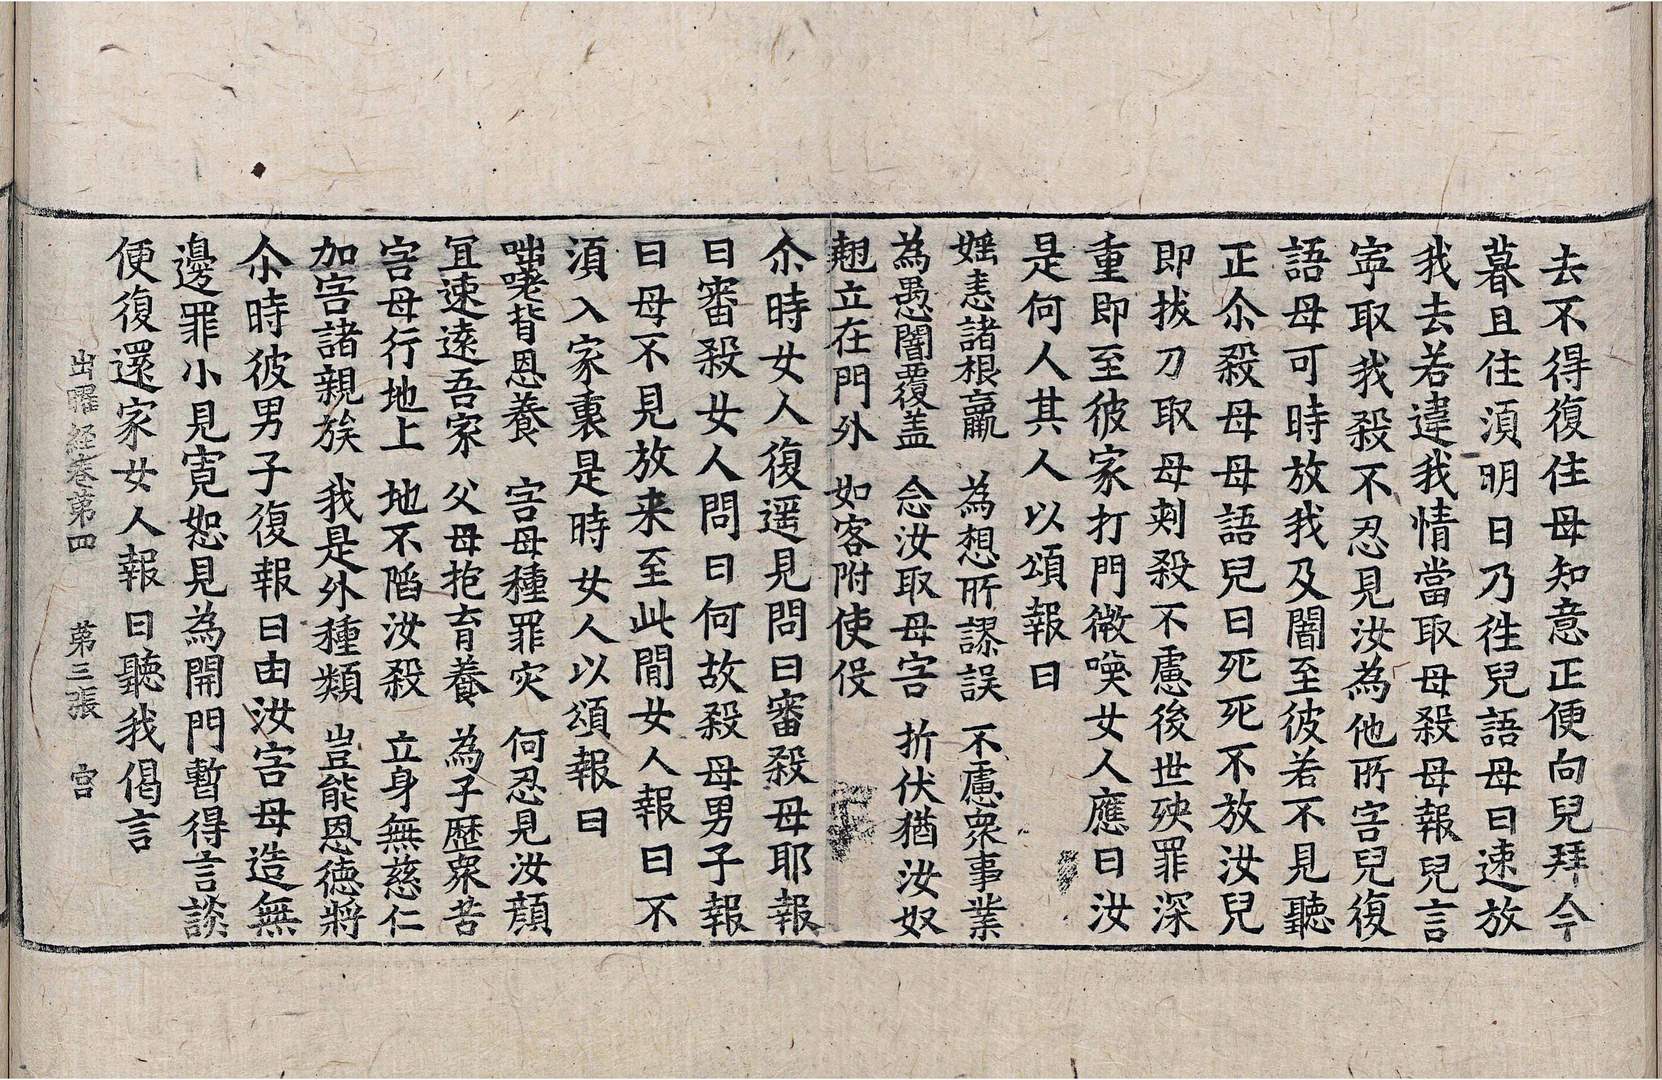 去不得復住母知意正便向兒拜今
暮且住湏明日乃徃兒語母曰速放
我去若違我情當取母殺母報兒言
寕取我殺不忍見汝為他所害兒復
語母可時放我及闇至彼若不見聽
正尒殺母母語兒曰死死不放汝兒
即拔刀取母刺殺不慮後世殃罪深
重即至彼家打門微喚女人應曰汝
是何人其人以頌報曰
婬恚諸根羸　為想所謬誤　不慮衆事業
為愚闇覆盖　念汝取母害　折伏猶汝奴
翹立在門外　如客附使伇
尒時女人復遥見問曰審殺母耶報
曰審殺女人問曰何故殺母男子報
曰母不見放来至此間女人報曰不
湏入家裏是時女人以頌報曰
咄嘊背恩養　害母種罪灾　何忍見汝顔
冝速遠吾家　父母抱育養　為子歷衆苦
害母行地上　地不陷汝殺　立身無慈仁
加害諸親族　我是外種類　豈能恩徳將
尒時彼男子復報曰由汝害母造無
邊罪小見寛恕見為開門暫得言談
便復還家女人報曰聽我偈言
出曜経卷第四　第三張　宫